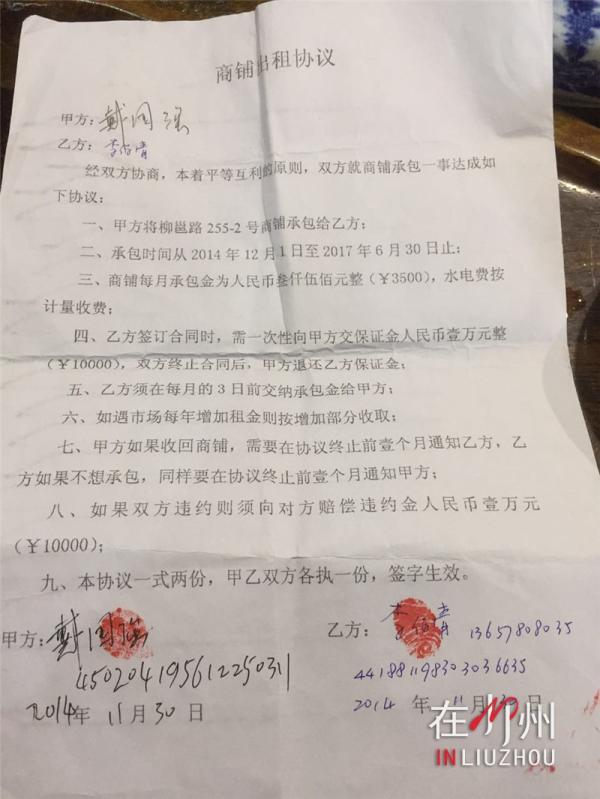 商铺出租协议
甲方：戴国强
乙方：
经双方协商，本着平等互利的原则，双方就商铺承包一事达成如
下协议：
一、甲方将柳邕路 255-2 号商铺承包给乙方；
二、承包时间从 2014 年 12 月 1 日至 2017 年 6 月 30 日止：
三、商铺每月承包金为人民币叁仟伍佰元整（￥3500），水电费按
计量收费；
四、乙方签订合同时，需一次性向甲方交保证金人民币壹万元整
（￥10000），双方终止合同后，甲方退还乙方保证金；
五、乙方须在每月的 3 日前交纳承包金给甲方；
六、如遇市场每年增加租金则按增加部分收取；
七、甲方如果收回商铺，需要在协议终止前壹个月通知乙方，乙
方如果不想承包，同样要在协议终止前壹个月通知甲方；
八、如果双方违约则须向对方赔偿违约金人民币壹万元
（￥10000）；
九、本协议一式两份，甲乙双方各执一份，签字生效。
甲方：戴国强
450204195612250311
2014年 11月 30 日
乙方： 13657808035
441881198303036635
2014 年 11月 日
在柳州
INLIUZHOU